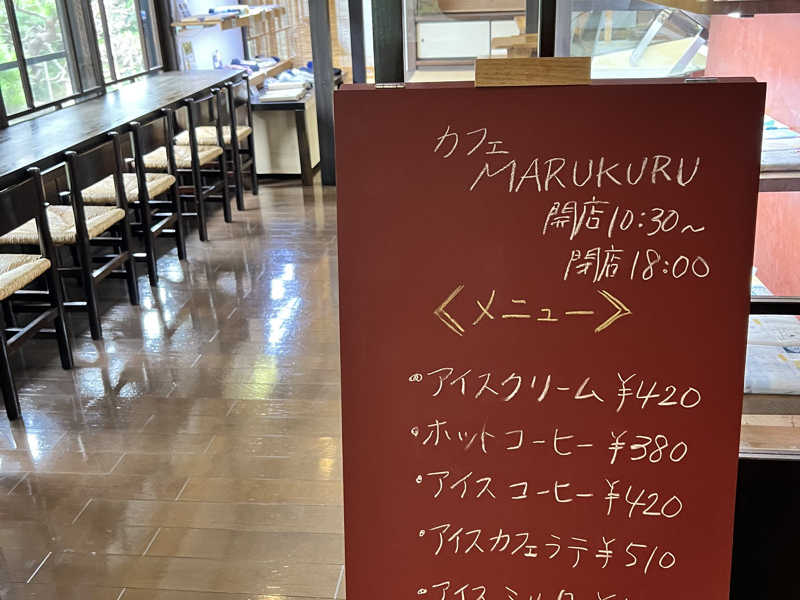 カフェ
MARUKURU
開店10:30~
閉店18:00
<メニュー>
・アイスクリーム ¥420
・ホットコーヒー ¥380
・アイスコーヒー ¥420
・アイスカフェラテ ¥510
・アイスミルク